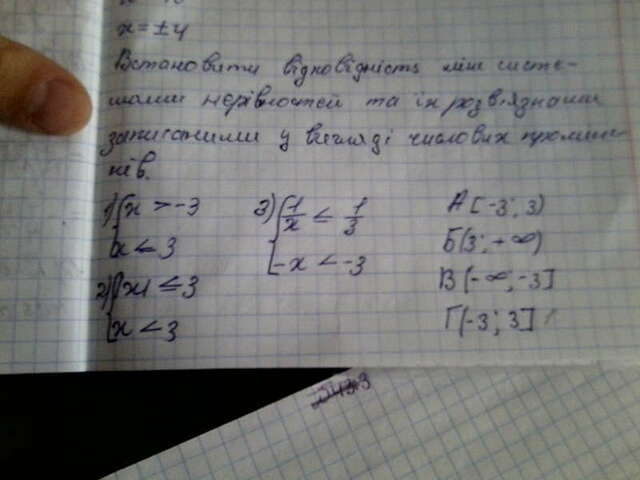 x = ±4
Встановити відповідність між систе-
мами нерівностей та їх розв'язками
записаними у вигляді числових проміж-
ків.
1) { x > -3
x < 3
2) { |x| ≤ 3
x < 3
3) { 1/x ≤ 1/3
-x < -3
А [-3; 3)
Б (3; +∞)
В [-∞; -3]
Г (-3; 3]